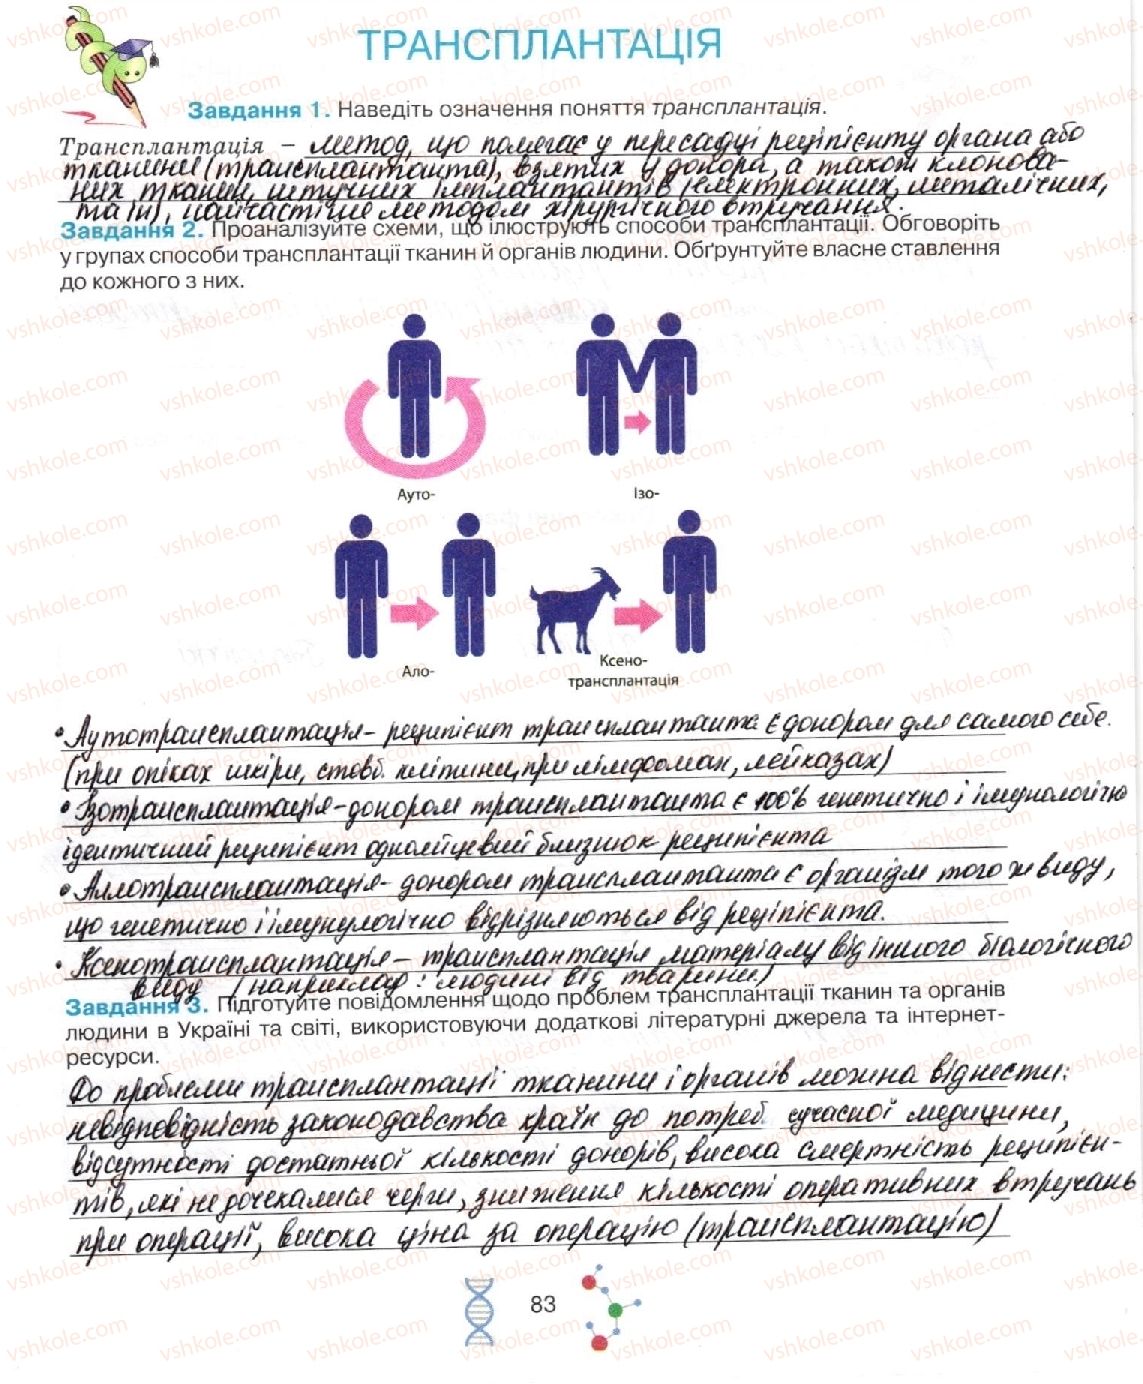 ТРАНСПЛАНТАЦІЯ
Завдання 1. Наведіть означення поняття трансплантація.
Трансплантація – метод, що помагає у пересадці реціпієнту органа або
тканини (трансплантанта), взятих у донора, а також клонова-
них тканин, штучних імплантантів (електронних, металічних,
та ін), найчастіше методом хірургічного втручання.
Завдання 2. Проаналізуйте схеми, що ілюструють способи трансплантації. Обговоріть
у групах способи трансплантації тканин й органів людини. Обґрунтуйте власне ставлення
до кожного з них.
Ауто-
Ізо-
Ало-
Ксено-
трансплантація
• Аутотрансплантація - реципієнт трансплантанта є донором для самого себе.
(при опіках шкіри, стовб. клітини, при лімфомах, лейказах)
• Ізотрансплантація - донором трансплантанта є 100% генетично і імунологічно
ідентичний реципієнт однояйцевий близнюк реципієнта
• Аллотрансплантація - донором трансплантанта є організм того ж виду,
що генетично і імунулогічно відрізняються від реціпієнта.
• Ксенотрансплантація - трансплантація матеріалу від іншого біологічного
виду (наприклад: людині від тварини)
Завдання 3. Підготуйте повідомлення щодо проблем трансплантації тканин та органів
людини в Україні та світі, використовуючи додаткові літературні джерела та інтернет-
ресурси.
До проблеми трансплантації тканини і органів можна віднести:
невідповідність законодавства країн до потреб сучасної медицини,
відсутності достатньої кількості донорів, висока смертність реципієн-
тів, які не дочекалися черги, зниження кількості оперативних втручань
при операції, висока ціна за операцію (трансплантацію)
83
vshkole.com